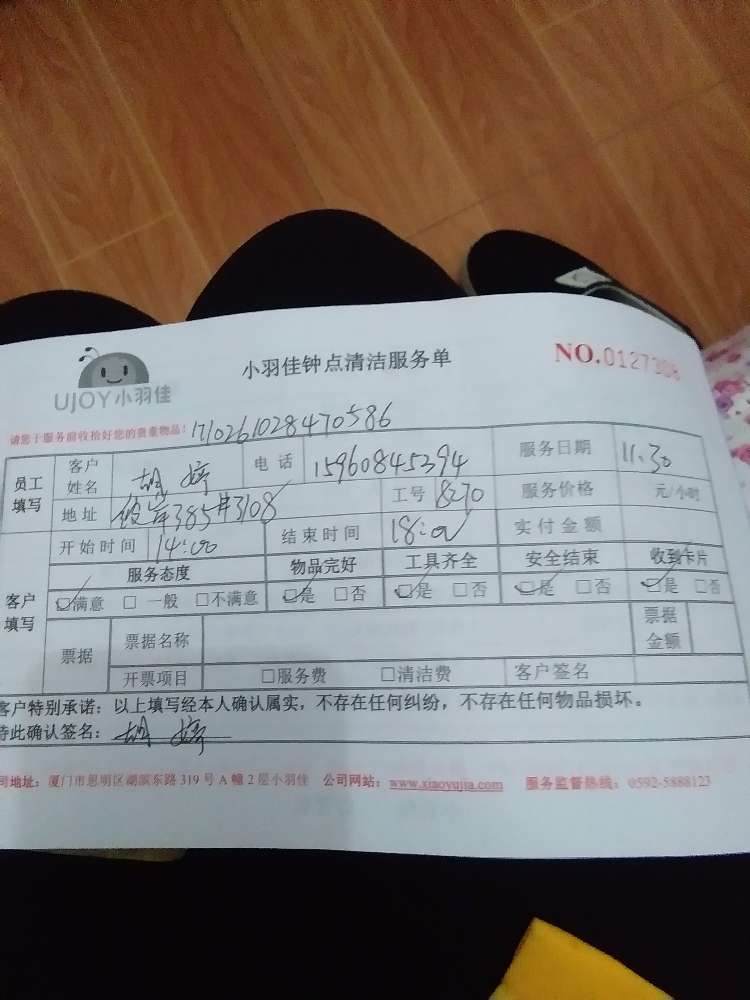 UJOY小羽佳
小羽佳钟点清洁服务单
NO.0127308
请您于服务前收拾好您的贵重物品! 1710261028470586
员工填写 客户姓名 胡婷 电话 15960845394 服务日期 11.30
地址 385#3108 工号 8270 服务价格 元/小时
开始时间 14:00 结束时间 18:00 实付金额
客户填写 服务态度 物品完好 工具齐全 安全结束 收到卡片
☑满意 □一般 □不满意 ☑是 □否 ☑是 □否 ☑是 □否 ☑是 □否
票据 票据名称 票据金额
开票项目 □服务费 □清洁费 客户签名
客户特别承诺：以上填写经本人确认属实，不存在任何纠纷，不存在任何物品损坏。
特此确认签名：胡婷
司地址：厦门市思明区湖滨东路319号A幢2层小羽佳 公司网站：www.xiaoyujia.com 服务监督热线：0592-5888123